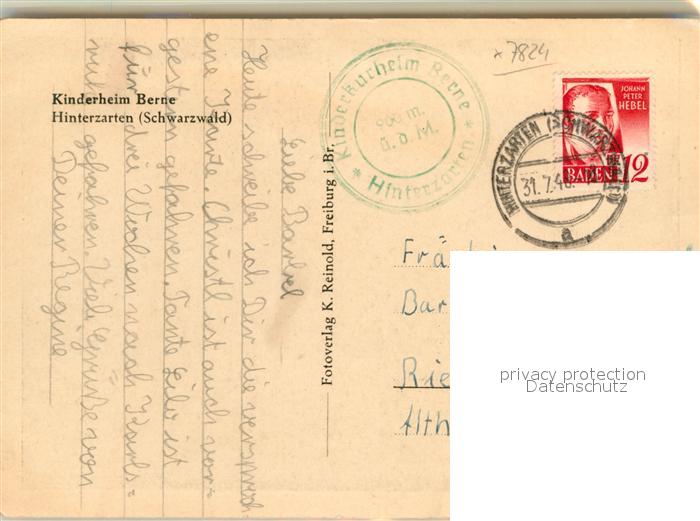 * 7824
Kinderheim Berne
Hinterzarten (Schwarzwald)
Kinderkurheim Berne
900 m.
ü. d. M.
* Hinterzarten *
JOHANN
PETER
HEBEL
BADEN 12
HINTERZARTEN (SCHWARZWALD)
31.7.48
a
Fotoverlag K. Reinold, Freiburg i. Br.
Liebe Bärbel
Heute schreibe ich Dir die versproch=
ene Karte. Christl ist auch vor=
gestern gefahren. Tante Lilo ist
für drei Wochen nach Karls=
ruh gefahren. Viele Grüße von
Deiner Regine
Frä
Bar
Rie
Alth
privacy protection
Datenschutz